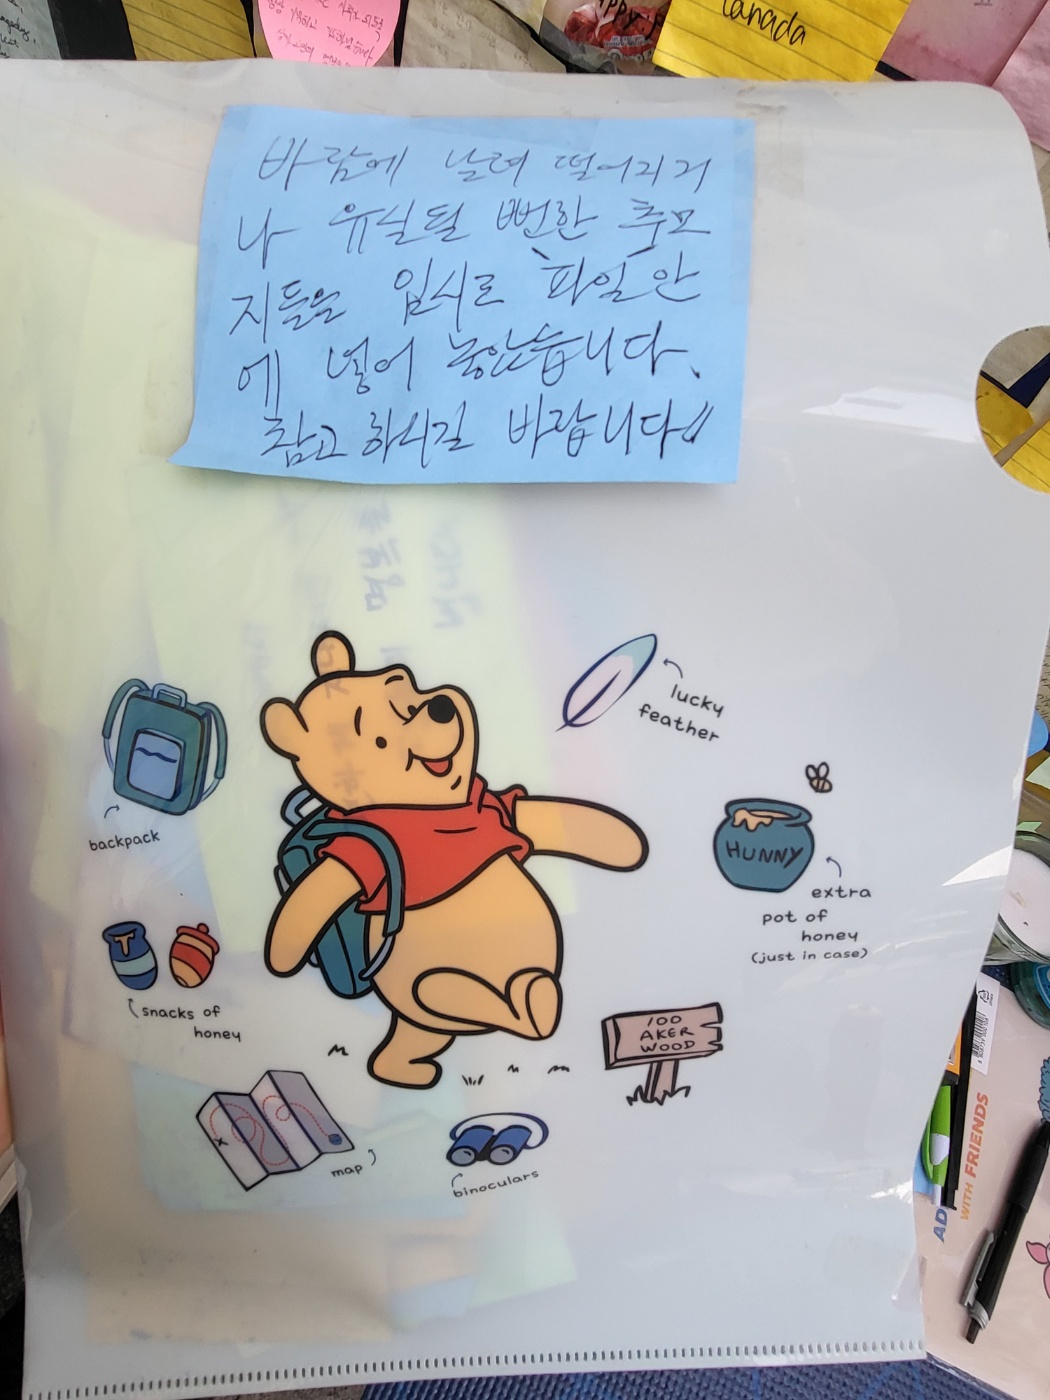 Canada
바람에 날려 떨어지거
나 유실될 뻔한 추모
지들을 임시로 파일 안
에 넣어 놓았습니다.
참고 하시길 바랍니다
lucky
feather
backpack
HUNNY
extra
pot of
honey
(just in case)
snacks of
honey
100
AKER
WOOD
map
binoculars
WITH FRIENDS